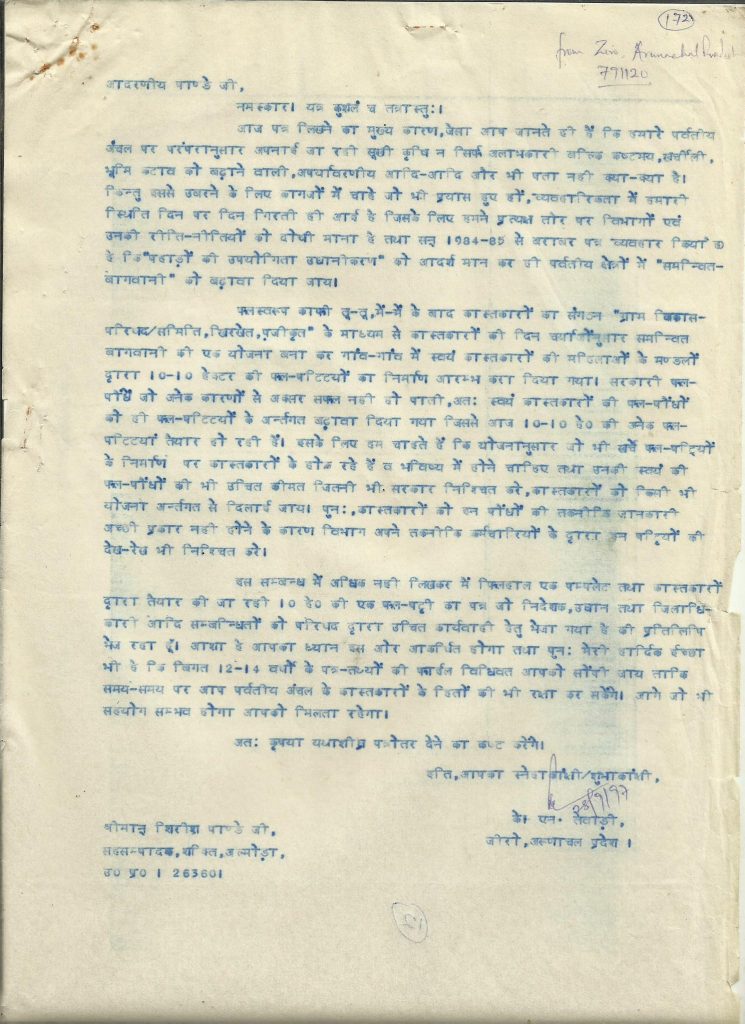 172
from Ziro, Arunachal Pradesh
791120
आदरणीय पाण्डे जी,
नमस्कार। यत्र कुशलं च तत्रास्तु:।
आज पत्र लिखने का मुख्य कारण,जैसा आप जानते ही हैं कि हमारे पर्वतीय
अंचल पर परंपरानुसार अपनाई जा रही सूखी कृषि न सिर्फ अलाभकारी बल्कि कष्टमय,खर्चीली,
भूमि कटाव को बढ़ाने वाली,अपर्यावरणीय आदि-आदि और भी पता नही क्या-क्या है।
किन्तु इससे उबरने के लिए कागजों में चाहे जो भी प्रयास हुए हों,व्यवहारिकता में हमारी
स्थिति दिन पर दिन गिरती ही आई है जिसके लिए हमने प्रत्यक्ष तौर पर विभागों एवं
उनकी रीति-नीतियों को दोषी माना है तथा सन् 1984-85 से बराबर पत्र व्यवहार किया
है कि"पहाड़ों की उपयोगिता उद्यानीकरण" को आदर्श मान कर ही पर्वतीय क्षेत्रों में "समन्वित-
बागवानी" को बढ़ावा दिया जाय।
फलस्वरूप काफी तू-तू,मैं-मैं के बाद कास्तकारों का संगठन "ग्राम विकास-
परिषद/समिति,खिरखेत,पंजीकृत" के माध्यम से कास्तकारों की दिन चर्यानुसार समन्वित
बागवानी की एक योजना बना कर गांव-गांव में स्वयं कास्तकारों की महिलाओं के मण्डलों
द्वारा 10-10 हेक्टर की फल-पट्टियों का निर्माण आरम्भ करा दिया गया। सरकारी फल-
पौधें जो अनेक कारणों से अक्सर सफल नही हो पाती,अत: स्वयं कास्तकारों की फल-पौधों
को ही फल-पट्टियों के अर्न्तगत बढ़ावा दिया गया जिससे आज 10-10 हे0 की अनेक फल-
पट्टियां तैयार हो रही हैं। इसके लिए हम चाहते हैं कि योजनानुसार जो भी खर्च फल-पट्टियों
के निर्माण पर कास्तकारों के हो रहे हैं व भविष्य में होने चाहिए तथा उनकी स्वयं की
फल-पौधों की भी उचित कीमत जितनी भी सरकार निश्चित करे,कास्तकारों को किसी भी
योजना अर्न्तगत से दिलाई जाय। पुन:,कास्तकारों को इन पौधों की तकनीकि जानकारी
अच्छी प्रकार नही होने के कारण विभाग अपने तकनीकि कर्मचारियों के द्वारा इन पट्टियों की
देख-रेख भी निश्चित करे।
इस सम्बन्ध में अधिक नही लिखकर मैं फिलहाल एक पम्पलेट तथा कास्तकारों
द्वारा तैयार की जा रही 10 हे0 की एक फल-पट्टी का पत्र जो निदेशक,उद्यान तथा जिलाधि-
कारी आदि सम्बन्धितों को परिषद द्वारा उचित कार्यवाही हेतु भेजा गया है की प्रतिलिपि
भेज रहा हूँ। आशा है आपका ध्यान इस ओर आकर्षित होगा तथा पुन: मेरी हार्दिक ईच्छा
भी है कि विगत 12-14 वर्षों के पत्र-तथ्यों की फाईल विधिवत आपको सौंपी जाय ताकि
समय-समय पर आप पर्वतीय अंचल के कास्तकारों के हितों की भी रक्षा कर सकेंगे। आगे जो भी
सहयोग सम्भव होगा आपको मिलता रहेगा।
अत: कृपया यथाशीघ्र पत्रोतर देने का कष्ट करेंगे।
इति,आपका स्नेहाकांक्षी/शुभाकांक्षी,
28/9/97
के0 एन0 तेवाड़ी,
जीरो,अरूणाचल प्रदेश।
श्रीमान् शिरीष पाण्डे जी,
सहसम्पादक,शक्ति,अल्मोड़ा,
उ0 प्र0 । 263601